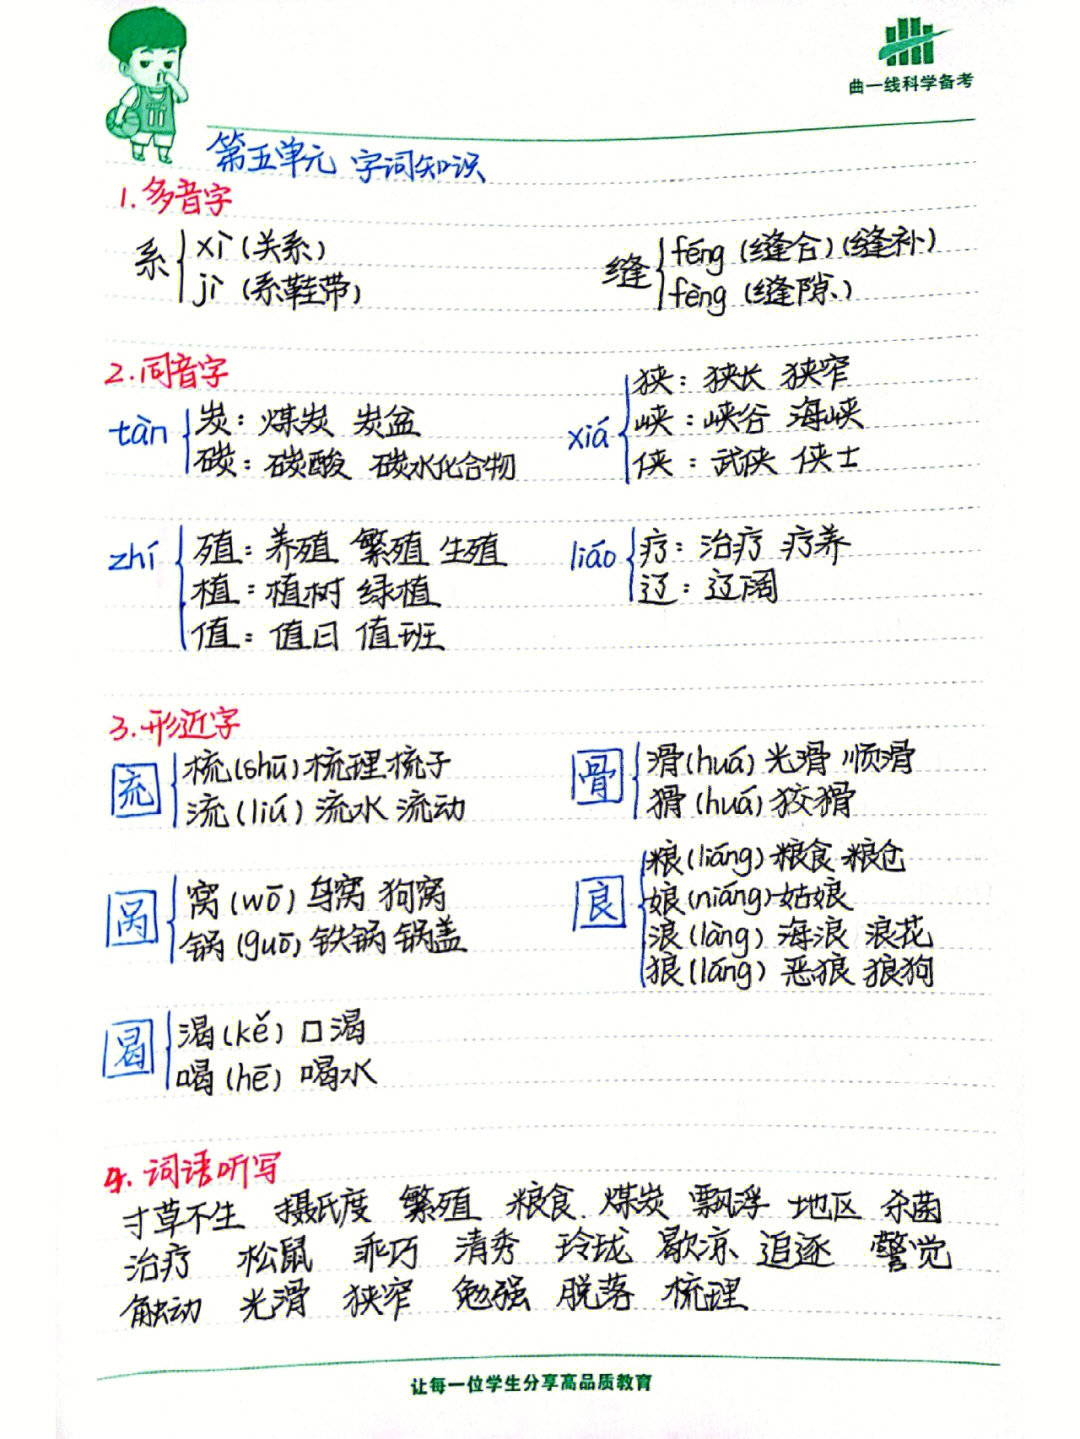 曲一线科学备考
第五单元 字词知识
1.多音字
系 xì(关系)
jì(系鞋带)
缝 féng(缝合)(缝补)
fèng(缝隙)
2.同音字
tàn 炭:煤炭 炭盆
碳:碳酸 碳水化合物
xiá 狭:狭长 狭窄
峡:峡谷 海峡
侠:武侠 侠士
zhí 殖:养殖 繁殖 生殖
植:植树 绿植
值:值日 值班
liáo 疗:治疗 疗养
辽:辽阔
3.形近字
㐬 梳(shū)梳理 梳子
流(liú)流水 流动
骨 滑(huá)光滑 顺滑
猾(huá)狡猾
呙 窝(wō)鸟窝 狗窝
锅(guō)铁锅 锅盖
良 粮(liáng)粮食 粮仓
娘(niáng)姑娘
浪(làng)海浪 浪花
狼(láng)恶狼 狼狗
曷 渴(kě)口渴
喝(hē)喝水
4.词语听写
寸草不生 摄氏度 繁殖 粮食 煤炭 飘浮 地区 杀菌
治疗 松鼠 乖巧 清秀 玲珑 歇凉 追逐 警觉
触动 光滑 狭窄 勉强 脱落 梳理
让每一位学生分享高品质教育